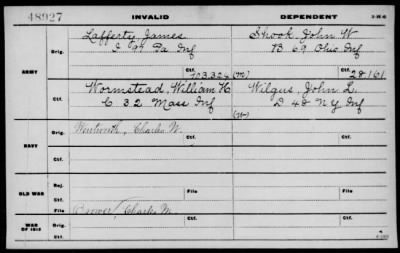 48927
INVALID DEPENDENT 3-H-6
Lafferty, James Shook, John W
Orig. I 97 Pa Inf B 69 Ohio Inf
ARMY Ctf. 703324 (m) Ctf. 28161
Wormstead, William H Wilgus, John L.
Ctf. C 32 Mass Inf D 48 N Y Inf
(m)
Orig. Wentworth, Charles W. Ctf.
NAVY
Ctf.
Rej. Ctf.
OLD WAR File
File Brower, Charles M.
WAR OF 1812 Orig. Ctf.
Ctf.